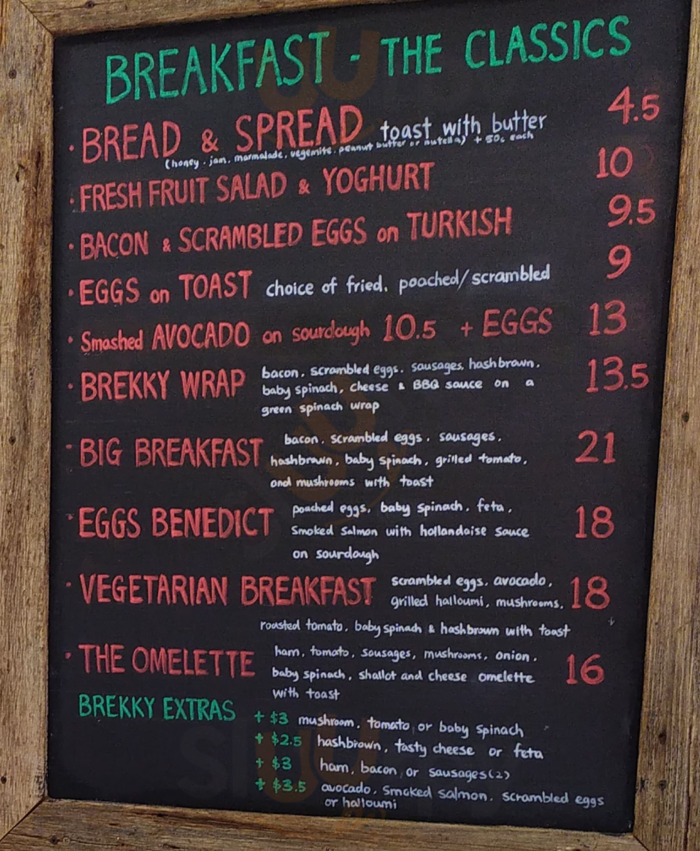 BREAKFAST - THE CLASSICS
· BREAD & SPREAD toast with butter 4.5
(honey, jam, marmalade, vegemite, peanut butter or nutella) + 50c each
· FRESH FRUIT SALAD & YOGHURT 10
· BACON & SCRAMBLED EGGS on TURKISH 9.5
· EGGS on TOAST choice of fried, poached/scrambled 9
· Smashed AVOCADO on sourdough 10.5 + EGGS 13
· BREKKY WRAP bacon, scrambled eggs, sausages, hashbrown, 13.5
baby spinach, cheese & BBQ sauce on a
green spinach wrap
· BIG BREAKFAST bacon, scrambled eggs, sausages, 21
hashbrown, baby spinach, grilled tomato,
and mushrooms with toast
· EGGS BENEDICT poached eggs, baby spinach, feta, 18
smoked salmon with hollandaise sauce
on sourdough
· VEGETARIAN BREAKFAST scrambled eggs, avocado, 18
grilled halloumi, mushrooms,
roasted tomato, baby spinach & hashbrown with toast
· THE OMELETTE ham, tomato, sausages, mushrooms, onion, 16
baby spinach, shallot and cheese omelette
with toast
BREKKY EXTRAS + $3 mushroom, tomato or baby spinach
+ $2.5 hashbrown, tasty cheese or feta
+ $3 ham, bacon or sausages(2)
+ $3.5 avocado, smoked salmon, scrambled eggs
or halloumi